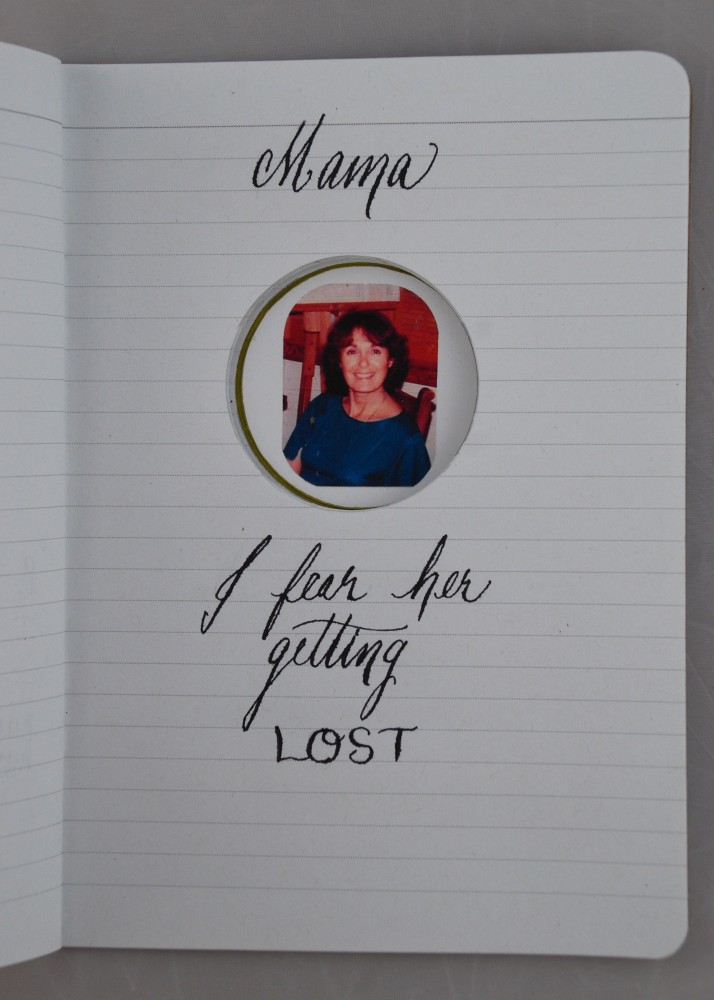 Mama
I fear her
getting
LOST